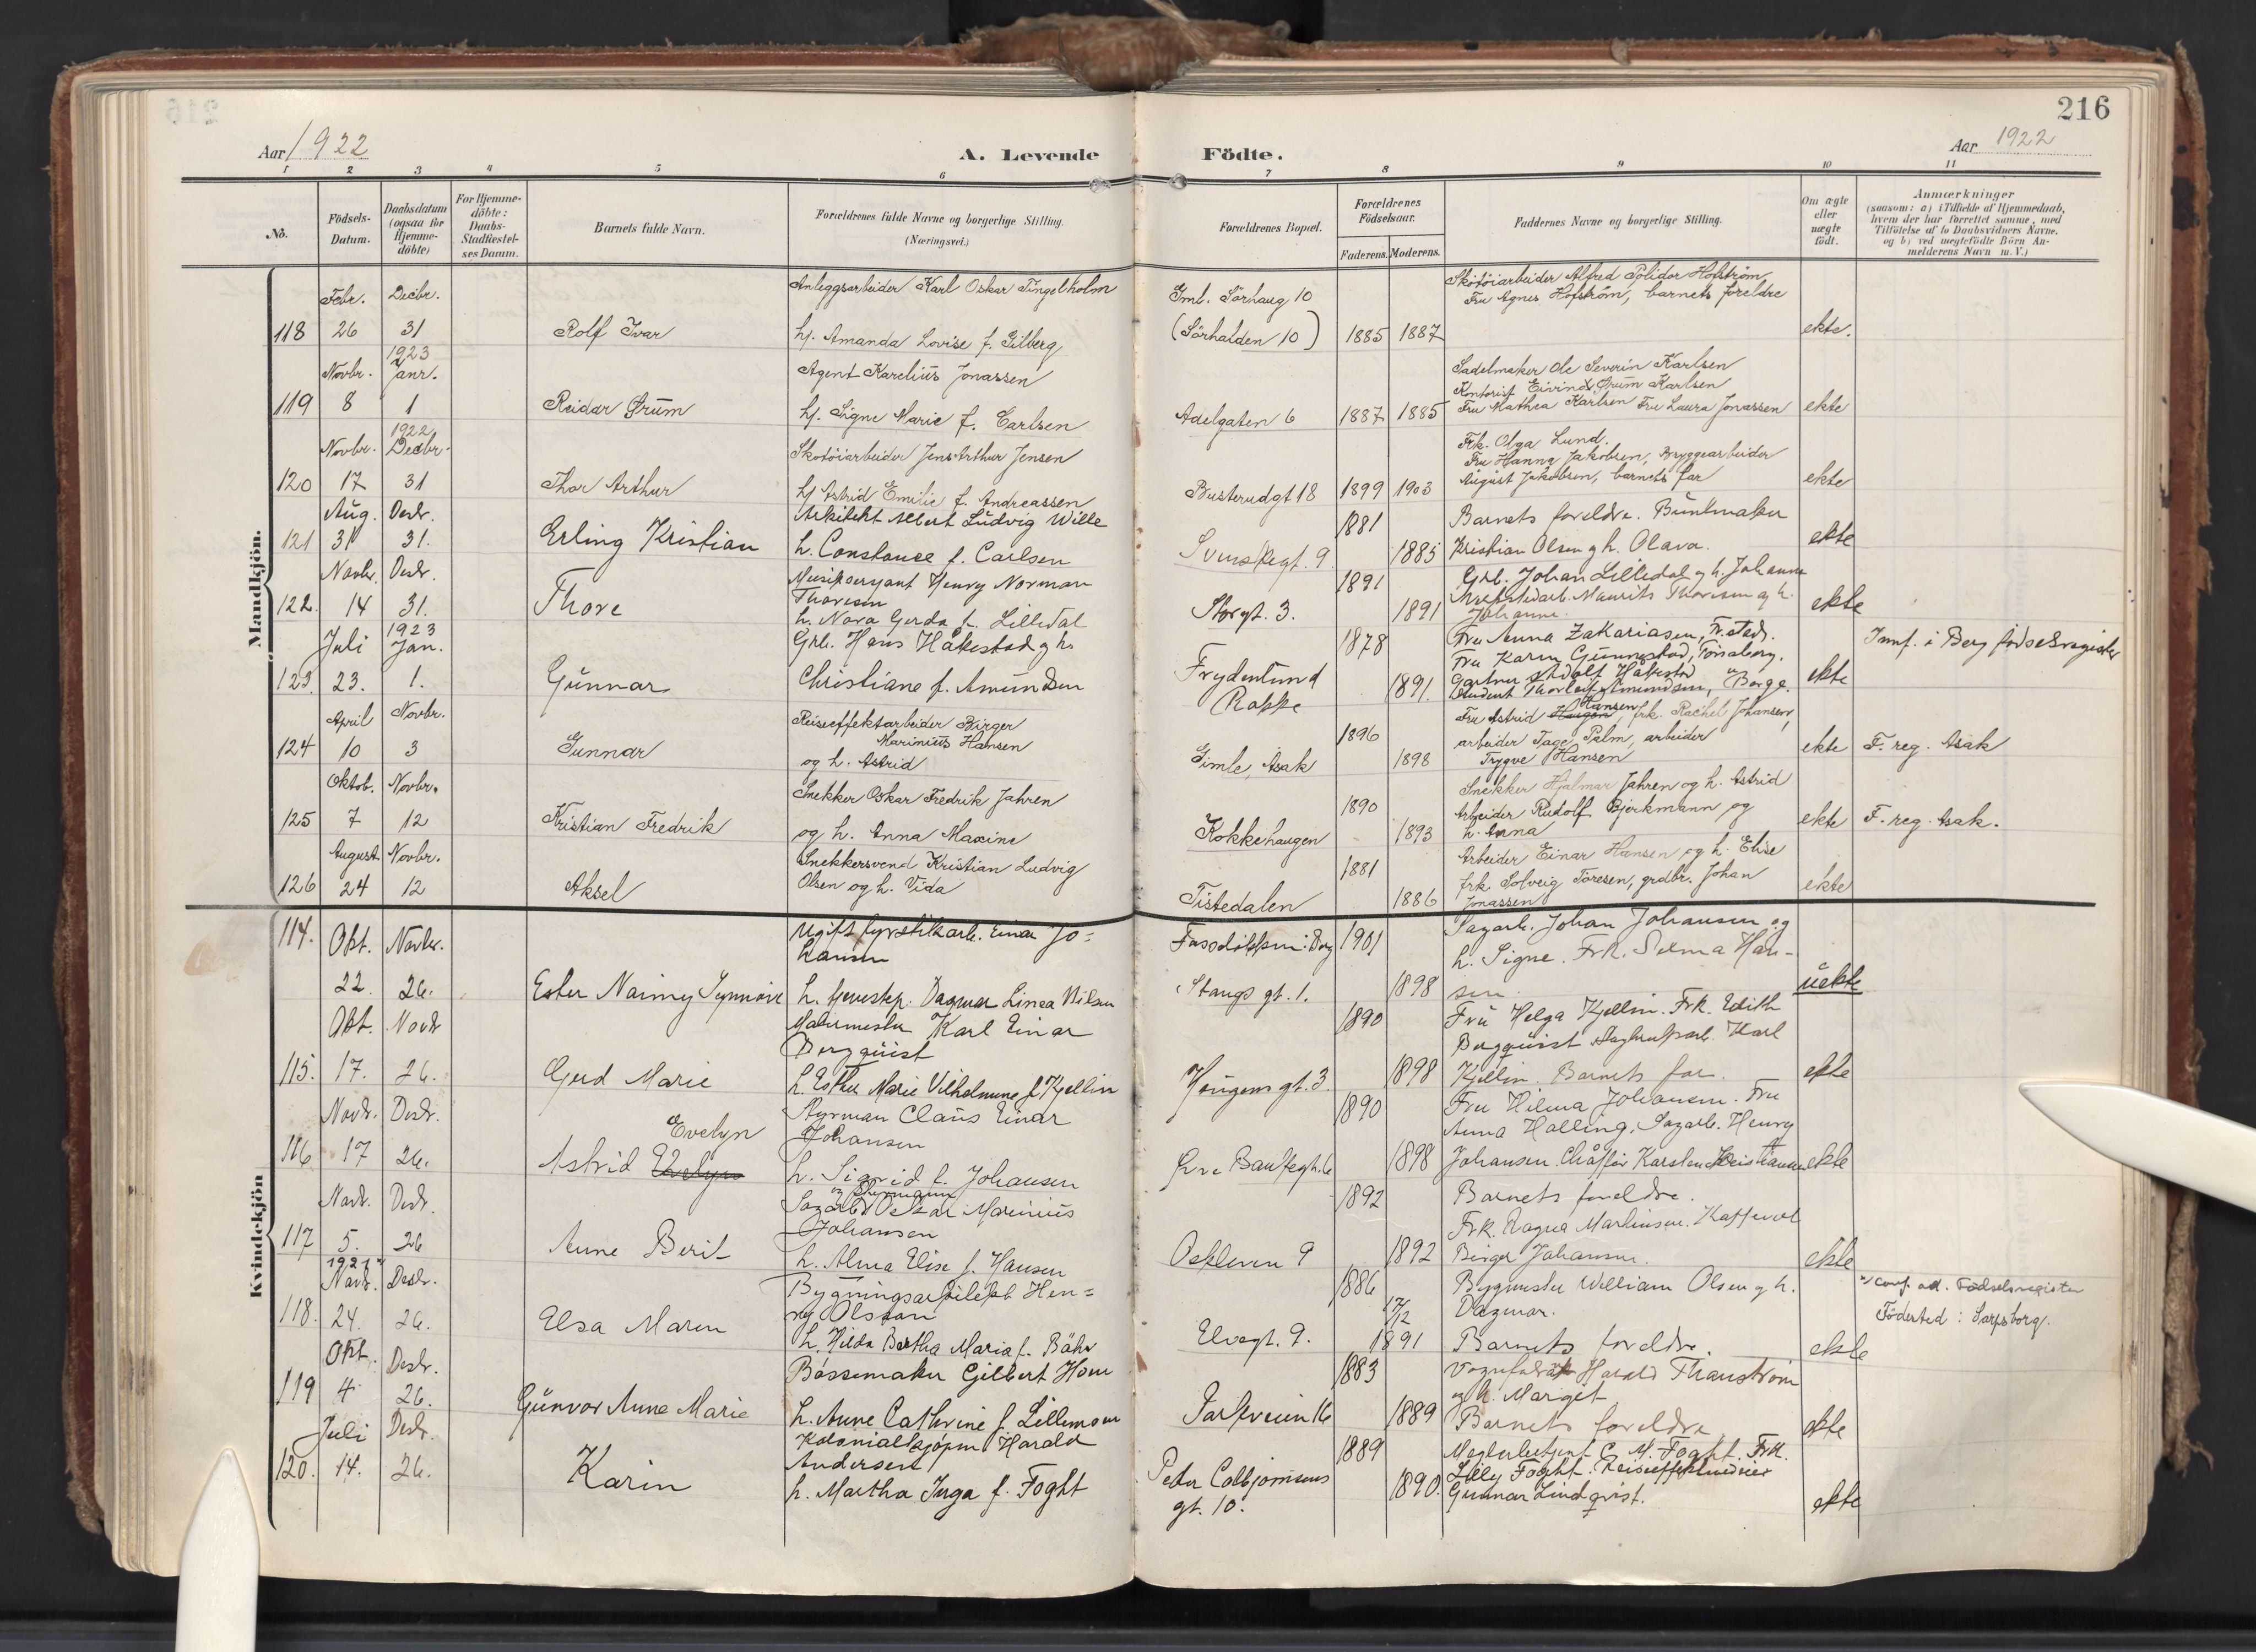 216
Aar 1922
A. Levende Födte.
Aar 1922
1 2 3 4 5 6 7 8 9 10 11
No.
Födsels-Datum.
Daabsdatum (ogsaa for Hjemme-döbte)
For Hjemme-döbte: Daabs-Stadfæstel-ses Datum.
Barnets fulde Navn.
Forældrenes fulde Navne og borgerlige Stilling. (Næringsvei.)
Forældrenes Bopæl.
Forældrenes Födselsaar.
Faderens. Moderens.
Faddernes Navne og borgerlige Stilling.
Om ægte eller uægte födt.
Anmærkninger (saasom: a) i Tilfælde af Hjemmedaab, hvem der har forrettet samme, med Tilföielse af to Daabsvidners Navne, og b) ved uægtefödte Börn An-melderens Navn m. V.)
Mandkjön.
118 Febr. 26 Decbr. 31 Rolf Ivar
Anleggsarbeider Karl Oskar Tingelholm
h. Amanda Lovise f. Gilberg
Gml. Sörhaug 10
(Sörhalden 10) 1885 1887
Skotöiarbeider Alfred Polidor Hofström,
Fru Agnes Hofström, barnets foreldre
ekte.
119 Novbr. 8 1923 Janr. 1 Reidar Ørum
Agent Karelius Jonassen
h. Signe Marie f. Carlsen
Adelgaten 6 1887 1885
Sadelmaker Ole Severin Karlsen
Kontorist Eivind Ørum Karlsen
Fru Mathea Karlsen Fru Laura Jonassen ekte
120 Novbr. 17 1922 Decbr. 31 Thor Arthur
Skotöiarbeider Jens Arthur Jensen
h. Astrid Emilie f. Andreassen
Busterudgt 18 1899 1903
Frk. Olga Lund.
Fru Hanna Jakobsen, Bryggearbeider
August Jakobsen, barnets far ekte
121 Aug. 31 Desbr. 31. Erling Kristian
Arkitekt Albert Ludvig Wille
h. Constance f. Carlsen
Svenskegt. 9. 1881 1885
Barnets foreldre. Buntmaker
Kristian Olsen og h. Olava. ekte
122. Novbr. 14 Desbr. 31. Thore
Musiksersjant Henry Norman
Thoresen
h. Nora Gerda f. Lilledal
Storgt. 3. 1891 1891
Grb. Johan Lilledal og h. Johanne
Maurits Thoresen og h.
Johanne. ekte
123. Juli 23. 1923 Jan. 1. Gunnar
Grb. Hans Håkestad og h.
Christiane f. Amundsen
Frydenlund
Rokke 1878 1891.
Fru Anna Zakariasen, Fr.stad.
Fru Karen Gunnestad, Tönsberg.
Gartner Adolf Håkestad
Student Thorleif Amundsen, Berge. ekte
Innf. i Berg födselsregister
124 April 10 Novbr. 3 Gunnar
Reiseeffektarbeider Birger
Marinius Hansen
og h. Astrid
Gimle, Asak 1896 1898
Fru Astrid Hansen, frk. Rachel Johansen,
arbeider Tage Palm, arbeider
Trygve Hansen ekte F. reg. Asak
125 Oktob. 7 Novbr. 12 Kristian Fredrik
Snekker Oskar Fredrik Jahren
og h. Anna Maxine
Kokkehaugen 1890 1893
Snekker Hjalmar Jahren og h. Astrid
Arbeider Rudolf Bjerkmann og
h. Anna ekte F. reg. Asak.
126 August 24 Novbr. 12 Aksel
Snekkersvend Kristian Ludvig
Olsen og h. Vida
Tistedalen 1881 1886
Arbeider Einar Hansen og h. Elise
frk. Solveig Toresen, grdbr. Johan
Jonassen ekte
Kvindekjön
114. Okt. 22. Novbr. 26. Ester Naimy Synnöve
Ugift fyrstikarb. Einar Jo-
hansen
h. Dagmar Linea Nilsen
i Berg 1901
Stangs gt. 1. 1898
Sagarb. Johan Johansen og
h. Signe. Frk. Selma Han-
sen. uekte
115. Okt. 17. Novbr 26. Gerd Marie
Malermester Karl Einar
Bergquist
h. Esther Marie Vilhelmine f. Kjellin
Haugens gt. 3. 1890 1898
Fru Helga Kjellin. Frk. Edith
Bergquist Karl
Kjellin. Barnets far. ekte
116 Novbr. 17 Desbr. 26. Astrid Evelyn
Styrman Claus Einar
Johansen
h. Sigrid f. Johansen
1890 1898
Fru Hilma Johansen. Fru
Anna Halling. Sagarb. Henry
Johansen. Chåffør Karsten Kristiansen ekte
117 Novbr. 5. Desbr. 26 Anne Berit
Sagarb. Oskar Marinius
Johansen
h. Alma Elise f. Hansen
Oskleven 9 1892 1892
Barnets foreldre.
Frk. Ragna Martinsen.
Birger Johansen. ekte
118. 1921 Novbr. 24. Desbr. 26. Elsa Maren
Bygningsarkitekt Hen-
ry Olsson
h. Hilda Bertha Maria f. Bähr
Elvegt. 9. 1886 17/12 1891
Bygmester William Olsen og h.
Dagmar.
Barnets foreldre. ekte
Conf. att. Födselsregister
Födested: Sarpsborg.
119 Okt. 4. Desbr. 26. Gunvor Anne Marie
Bössemaker Gilbert Horn
h. Anne Cathrine f. Lillemoen
Parkveien 16 1883 1889
Harald Thanström
og h. Margit
Barnets foreldre ekte
120. Juli 14. Desbr. 26. Karin
Kolonialkjöpm. Harald
Andersen
h. Martha Inga f. Foght
Peter Colbjörnsens
gt. 10. 1889 1890.
C. M. Foght. Frk.
Lilly Foght.
Gunnar Lindqvist. ekte